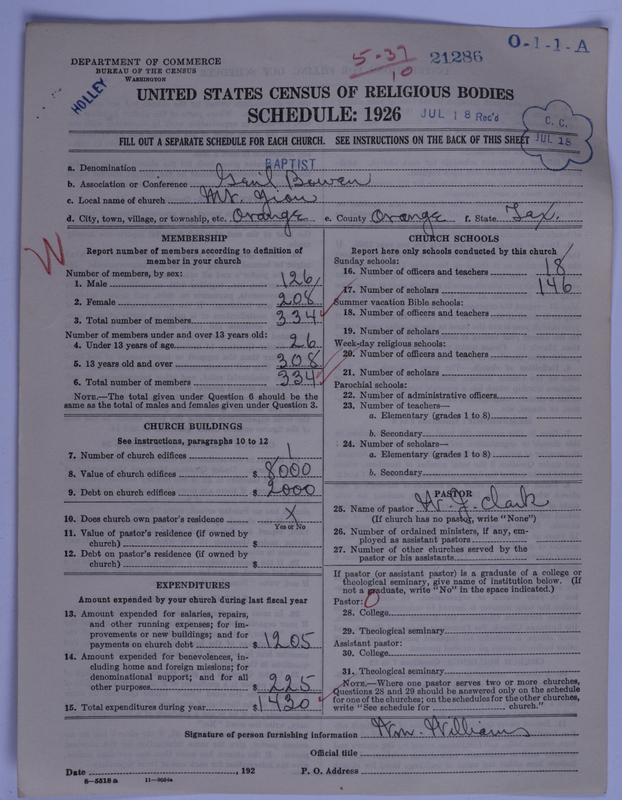 DEPARTMENT OF COMMERCE
BUREAU OF THE CENSUS
WASHINGTON
HOLLEY
5-37
10
21286
0-1-1-A
UNITED STATES CENSUS OF RELIGIOUS BODIES
SCHEDULE: 1926
JUL 18 Rec'd
C. C.
JUL 18
FILL OUT A SEPARATE SCHEDULE FOR EACH CHURCH. SEE INSTRUCTIONS ON THE BACK OF THIS SHEET
a. Denomination BAPTIST
b. Association or Conference Genl Bowen
c. Local name of church Mt. Zion
d. City, town, village, or township, etc. Orange e. County Orange f. State Tex.
W
MEMBERSHIP
Report number of members according to definition of
member in your church
Number of members, by sex:
1. Male 126
2. Female 208
3. Total number of members 334
Number of members under and over 13 years old:
4. Under 13 years of age 26
5. 13 years old and over 308
6. Total number of members 334
NOTE.—The total given under Question 6 should be the
same as the total of males and females given under Question 3.
CHURCH BUILDINGS
See instructions, paragraphs 10 to 12
7. Number of church edifices 1
8. Value of church edifices $ 8000
9. Debt on church edifices $ 2000
10. Does church own pastor's residence X
Yes or No
11. Value of pastor's residence (if owned by
church) $
12. Debt on pastor's residence (if owned by
church) $
EXPENDITURES
Amount expended by your church during last fiscal year
13. Amount expended for salaries, repairs,
and other running expenses; for im-
provements or new buildings; and for
payments on church debt $ 1205
14. Amount expended for benevolences, in-
cluding home and foreign missions; for
denominational support; and for all
other purposes $ 225
15. Total expenditures during year $ 1430
CHURCH SCHOOLS
Report here only schools conducted by this church
Sunday schools:
16. Number of officers and teachers 18
17. Number of scholars 146
Summer vacation Bible schools:
18. Number of officers and teachers
19. Number of scholars
Week-day religious schools:
20. Number of officers and teachers
21. Number of scholars
Parochial schools:
22. Number of administrative officers
23. Number of teachers—
a. Elementary (grades 1 to 8)
b. Secondary
24. Number of scholars—
a. Elementary (grades 1 to 8)
b. Secondary
PASTOR
25. Name of pastor W. J. Clark
(If church has no pastor, write "None")
26. Number of ordained ministers, if any, em-
ployed as assistant pastors
27. Number of other churches served by the
pastor or his assistants
If pastor (or assistant pastor) is a graduate of a college or
theological seminary, give name of institution below. (If
not a graduate, write "No" in the space indicated.)
Pastor: 0
28. College
29. Theological seminary
Assistant pastor:
30. College
31. Theological seminary
NOTE.—Where one pastor serves two or more churches,
Questions 28 and 29 should be answered only on the schedule
for one of the churches; on the schedules for the other churches,
write "See schedule for church."
Signature of person furnishing information Wm. Williams
Official title
Date , 192 P. O. Address
8—5518a 11—9554a